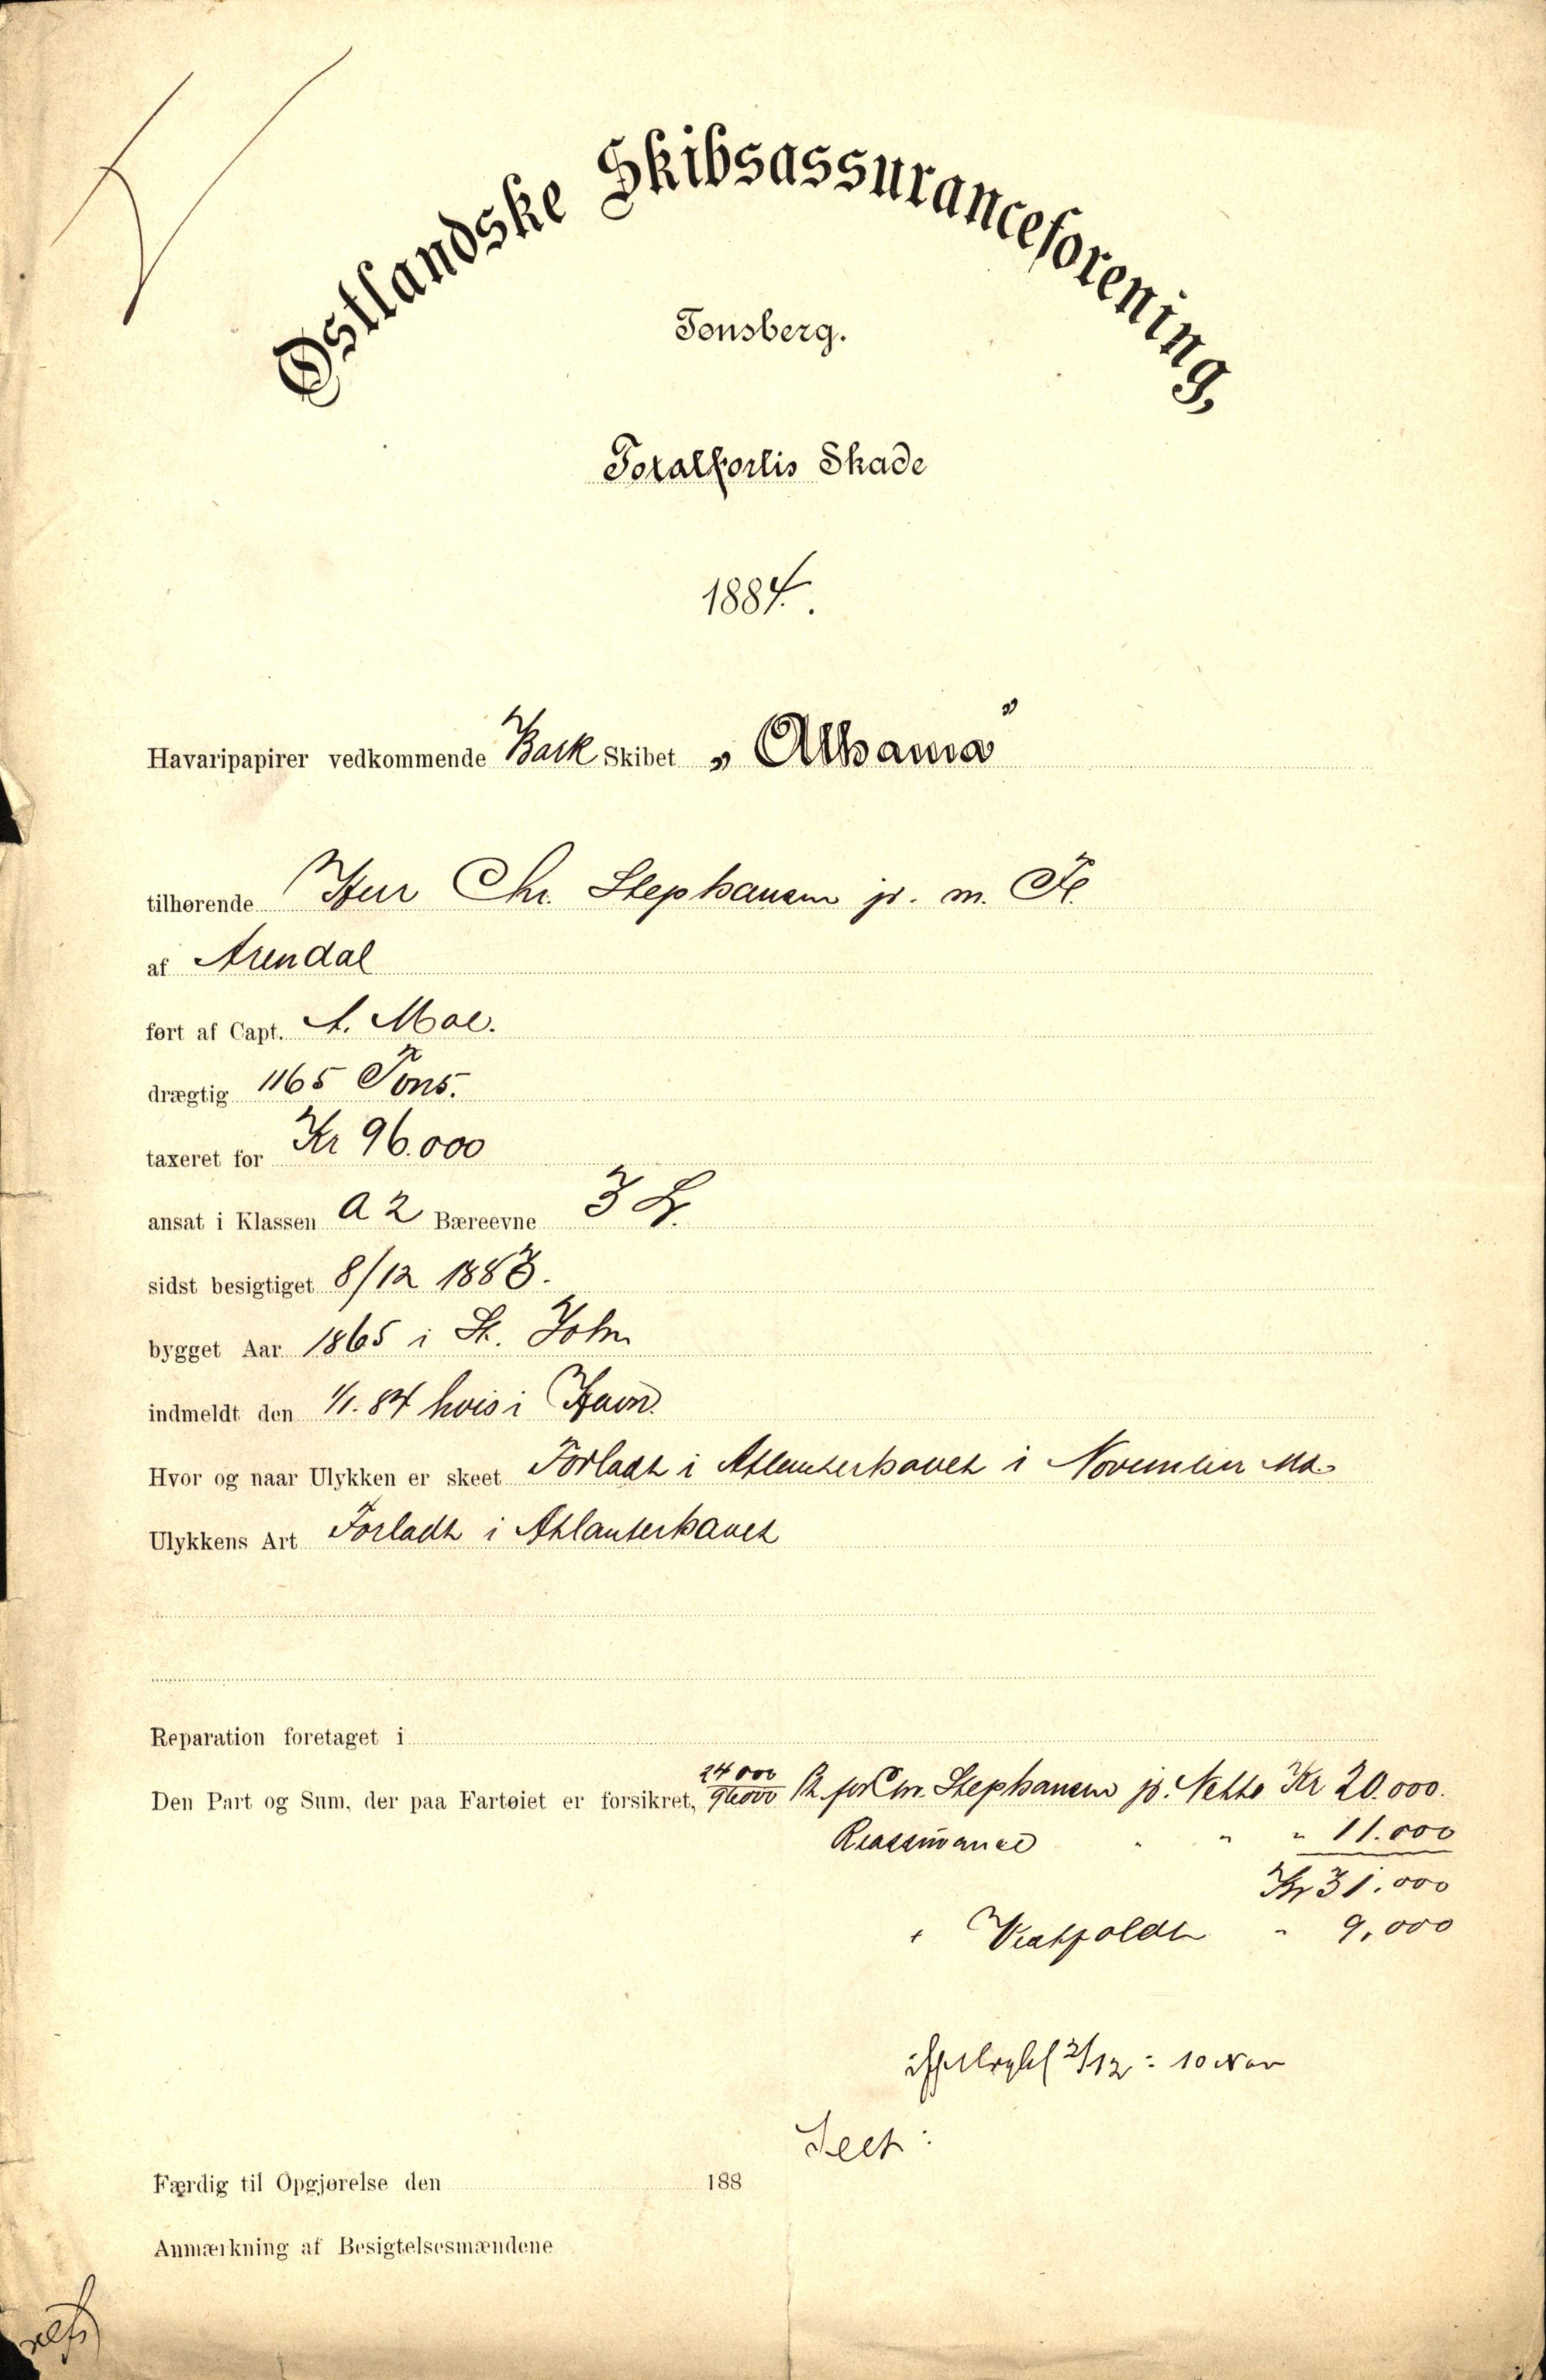 Østlandske Skibsassuranceforening,
Tønsberg.
Totalforlis Skade
1884.
Havaripapirer vedkommende Bark Skibet „Alhama"
tilhørende Herr Chr. Stephansen jr. m. Fl.
af Arendal
ført af Capt. A. Moe.
drægtig 1165 Tons.
taxeret for Kr 96.000
ansat i Klassen A 2 Bæreevne 3 L.
sidst besigtiget 8/12 1883.
bygget Aar 1865 i St. John
indmeldt den 1/1. 84 hvis i Havn.
Hvor og naar Ulykken er skeet Forladt i Atlanterhavet i November Md.
Ulykkens Art Forladt i Atlanterhavet
Reparation foretaget i
Den Part og Sum, der paa Fartøiet er forsikret, 24000/96000 Pt. for Chr. Stephansen jr. Netto Kr 20.000.
Reassurance " " " 11.000
Kr 31.000
+ Vestfoldt " 9,000
2/12: 10 Nov
Færdig til Opgjørelse den 188
Anmærkning af Besigtelsesmændene